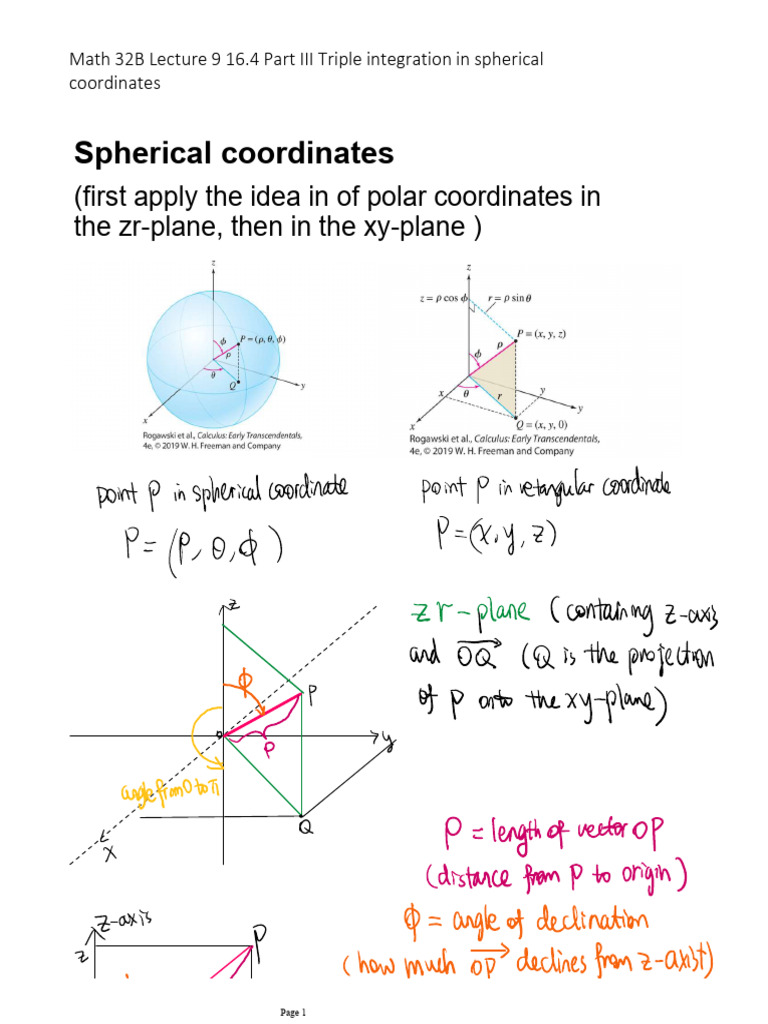 Math 32B Lecture 9 16.4 Part III Triple integration in spherical
coordinates
Spherical coordinates
(first apply the idea in of polar coordinates in
the zr-plane, then in the xy-plane )
z
ϕ
P = (ρ, θ, ϕ)
ρ
θ
Q
y
x
Rogawski et al., Calculus: Early Transcendentals,
4e, © 2019 W. H. Freeman and Company
z
z = ρ cos ϕ
r = ρ sin θ
P = (x, y, z)
ρ
ϕ
x
θ
r
y
y
x
Q = (x, y, 0)
Rogawski et al., Calculus: Early Transcendentals,
4e, © 2019 W. H. Freeman and Company
point P in spherical coordinate
P = (ρ, θ, ϕ)
point P in retangular coordinate
P = (x, y, z)
z
ϕ
P
ρ
o
y
angle from 0 to π
Q
x
zr-plane (containing z-axis
and OQ (Q is the projection
of P onto the xy-plane)
ρ = length of vector OP
(distance from P to origin)
ϕ = angle of declination
(how much OP declines from z-axist)
z-axis
z
P
Page 1